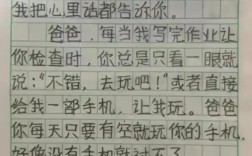 我把心里话都告诉你。
爸爸，每当我写完作业让
你检查时，你总是只看一眼就
说：“不错，去玩吧！”或者直接
给我一部手机，让我玩。爸爸
你每天只要有空就玩你的手机，
好像没有手机就过不了